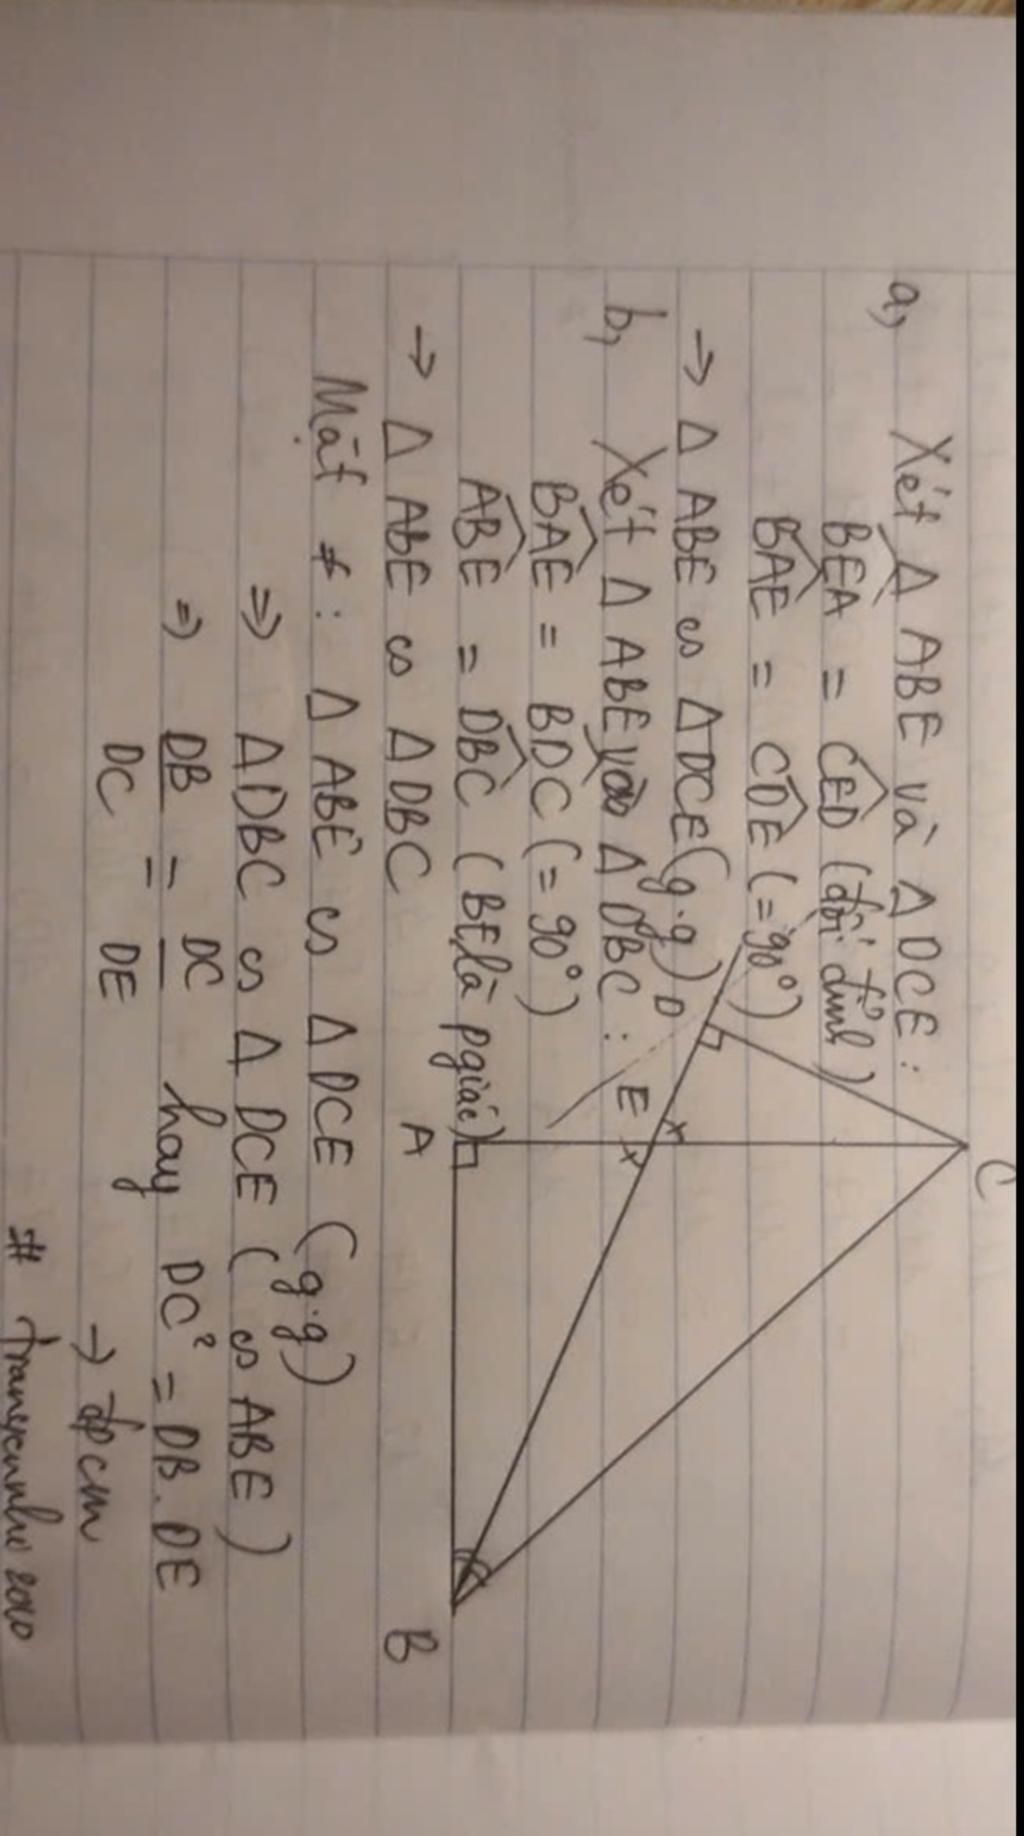 a, Xét Δ ABE và Δ DCE :
BEA = CED (đối đỉnh)
BAE = CDE (= 90°)
→ Δ ABE ∽ ΔDCE (g.g)
b, Xét Δ ABE và Δ DBC :
BAE = BDC (= 90°)
ABE = DBC (BE là pgiác)
→ Δ ABE ∽ Δ DBC
Mặt ≠ : Δ ABE ∽ Δ DCE (g.g)
⇒ ΔDBC ∽ Δ DCE ( ∽ ABE )
⇒ DB/DC = DC/DE hay DC² = DB . DE
→ đpcm
#
C
D
E
A
B